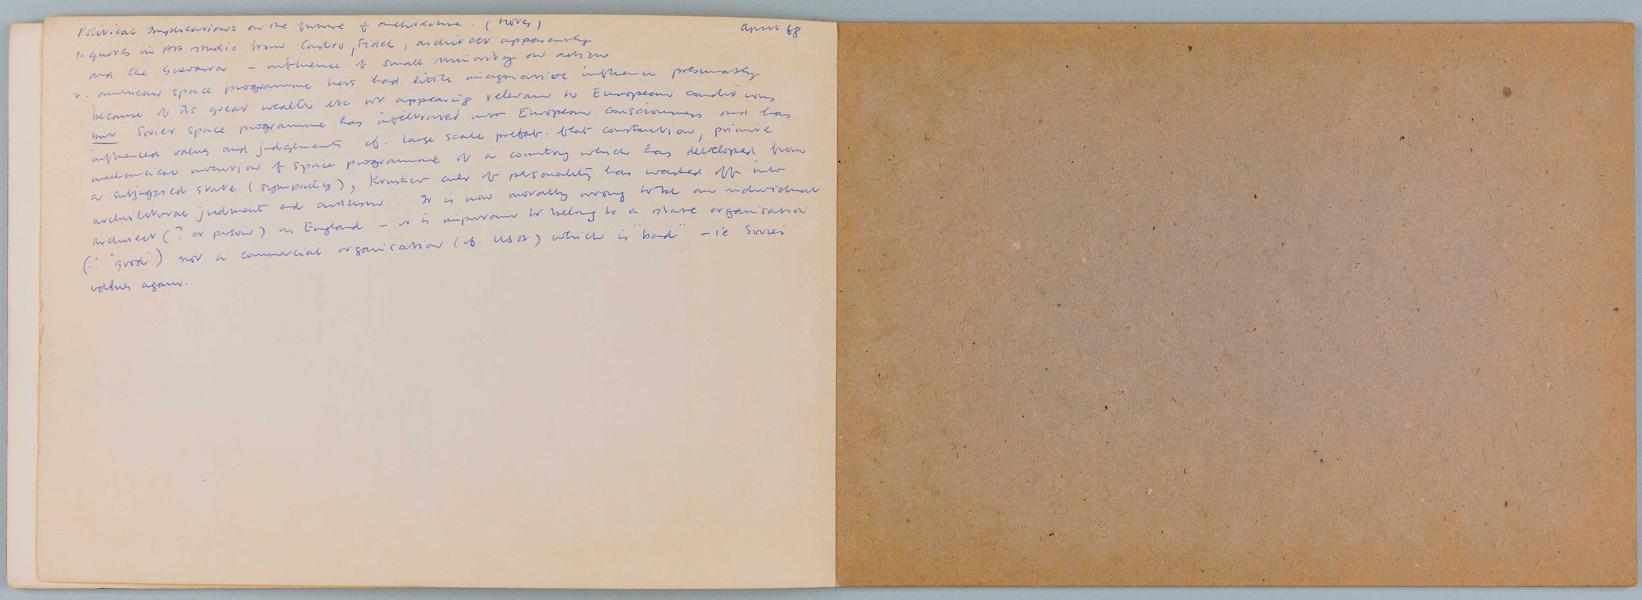 Political Implications on the future of architecture. (notes) April 68
1. quotes in AA studio from Castro, Fidel, architect apparently
and Che Guevara - influence of small minority on action
2. American space programme has had little imaginative influence presumably
because of its great wealth etc not appearing relevant to European conditions
but Soviet space programme has infiltrated into European consciousness and has
influenced values and judgments cf. large scale prefab. flat construction, primitive
mechanical of space programme of a country which has developed from
a subjugated state (sympathy), Kruschev cult of personality has washed off into
architectural judgment and criticism. It is now morally wrong to be an individual
architect (? or person) in England - it is important to belong to a state organisation
(∴ "good") not a commercial organisation (cf. USA) which is "bad" - ie Soviet
values again.